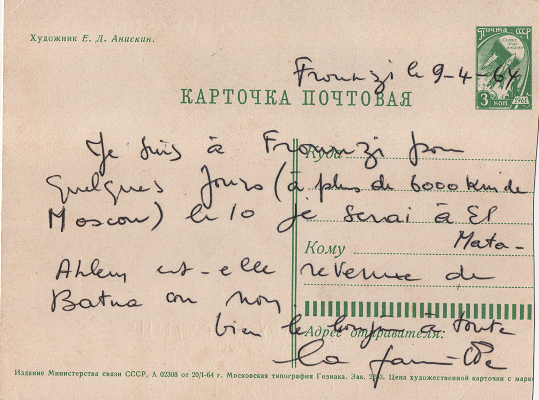 Художник Е. Д. Анискин.
ПОЧТА СССР
3 КОП
1961
Frounzi le 9-4-64
КАРТОЧКА ПОЧТОВАЯ
Je suis à Frounzi pour
Куда
quelques jours (à plus de 6000 km de
Moscou) le 10 je serai à El
Кому
Mata-
Ahlem est-elle revenue de
Batna ou non.
bien le bonjour à toute
Адрес отправителя:
la famille
Издание Министерства связи СССР. А 02308 от 20/I-64 г. Московская типография Гознака. Зак. Цена художественной карточки с марко